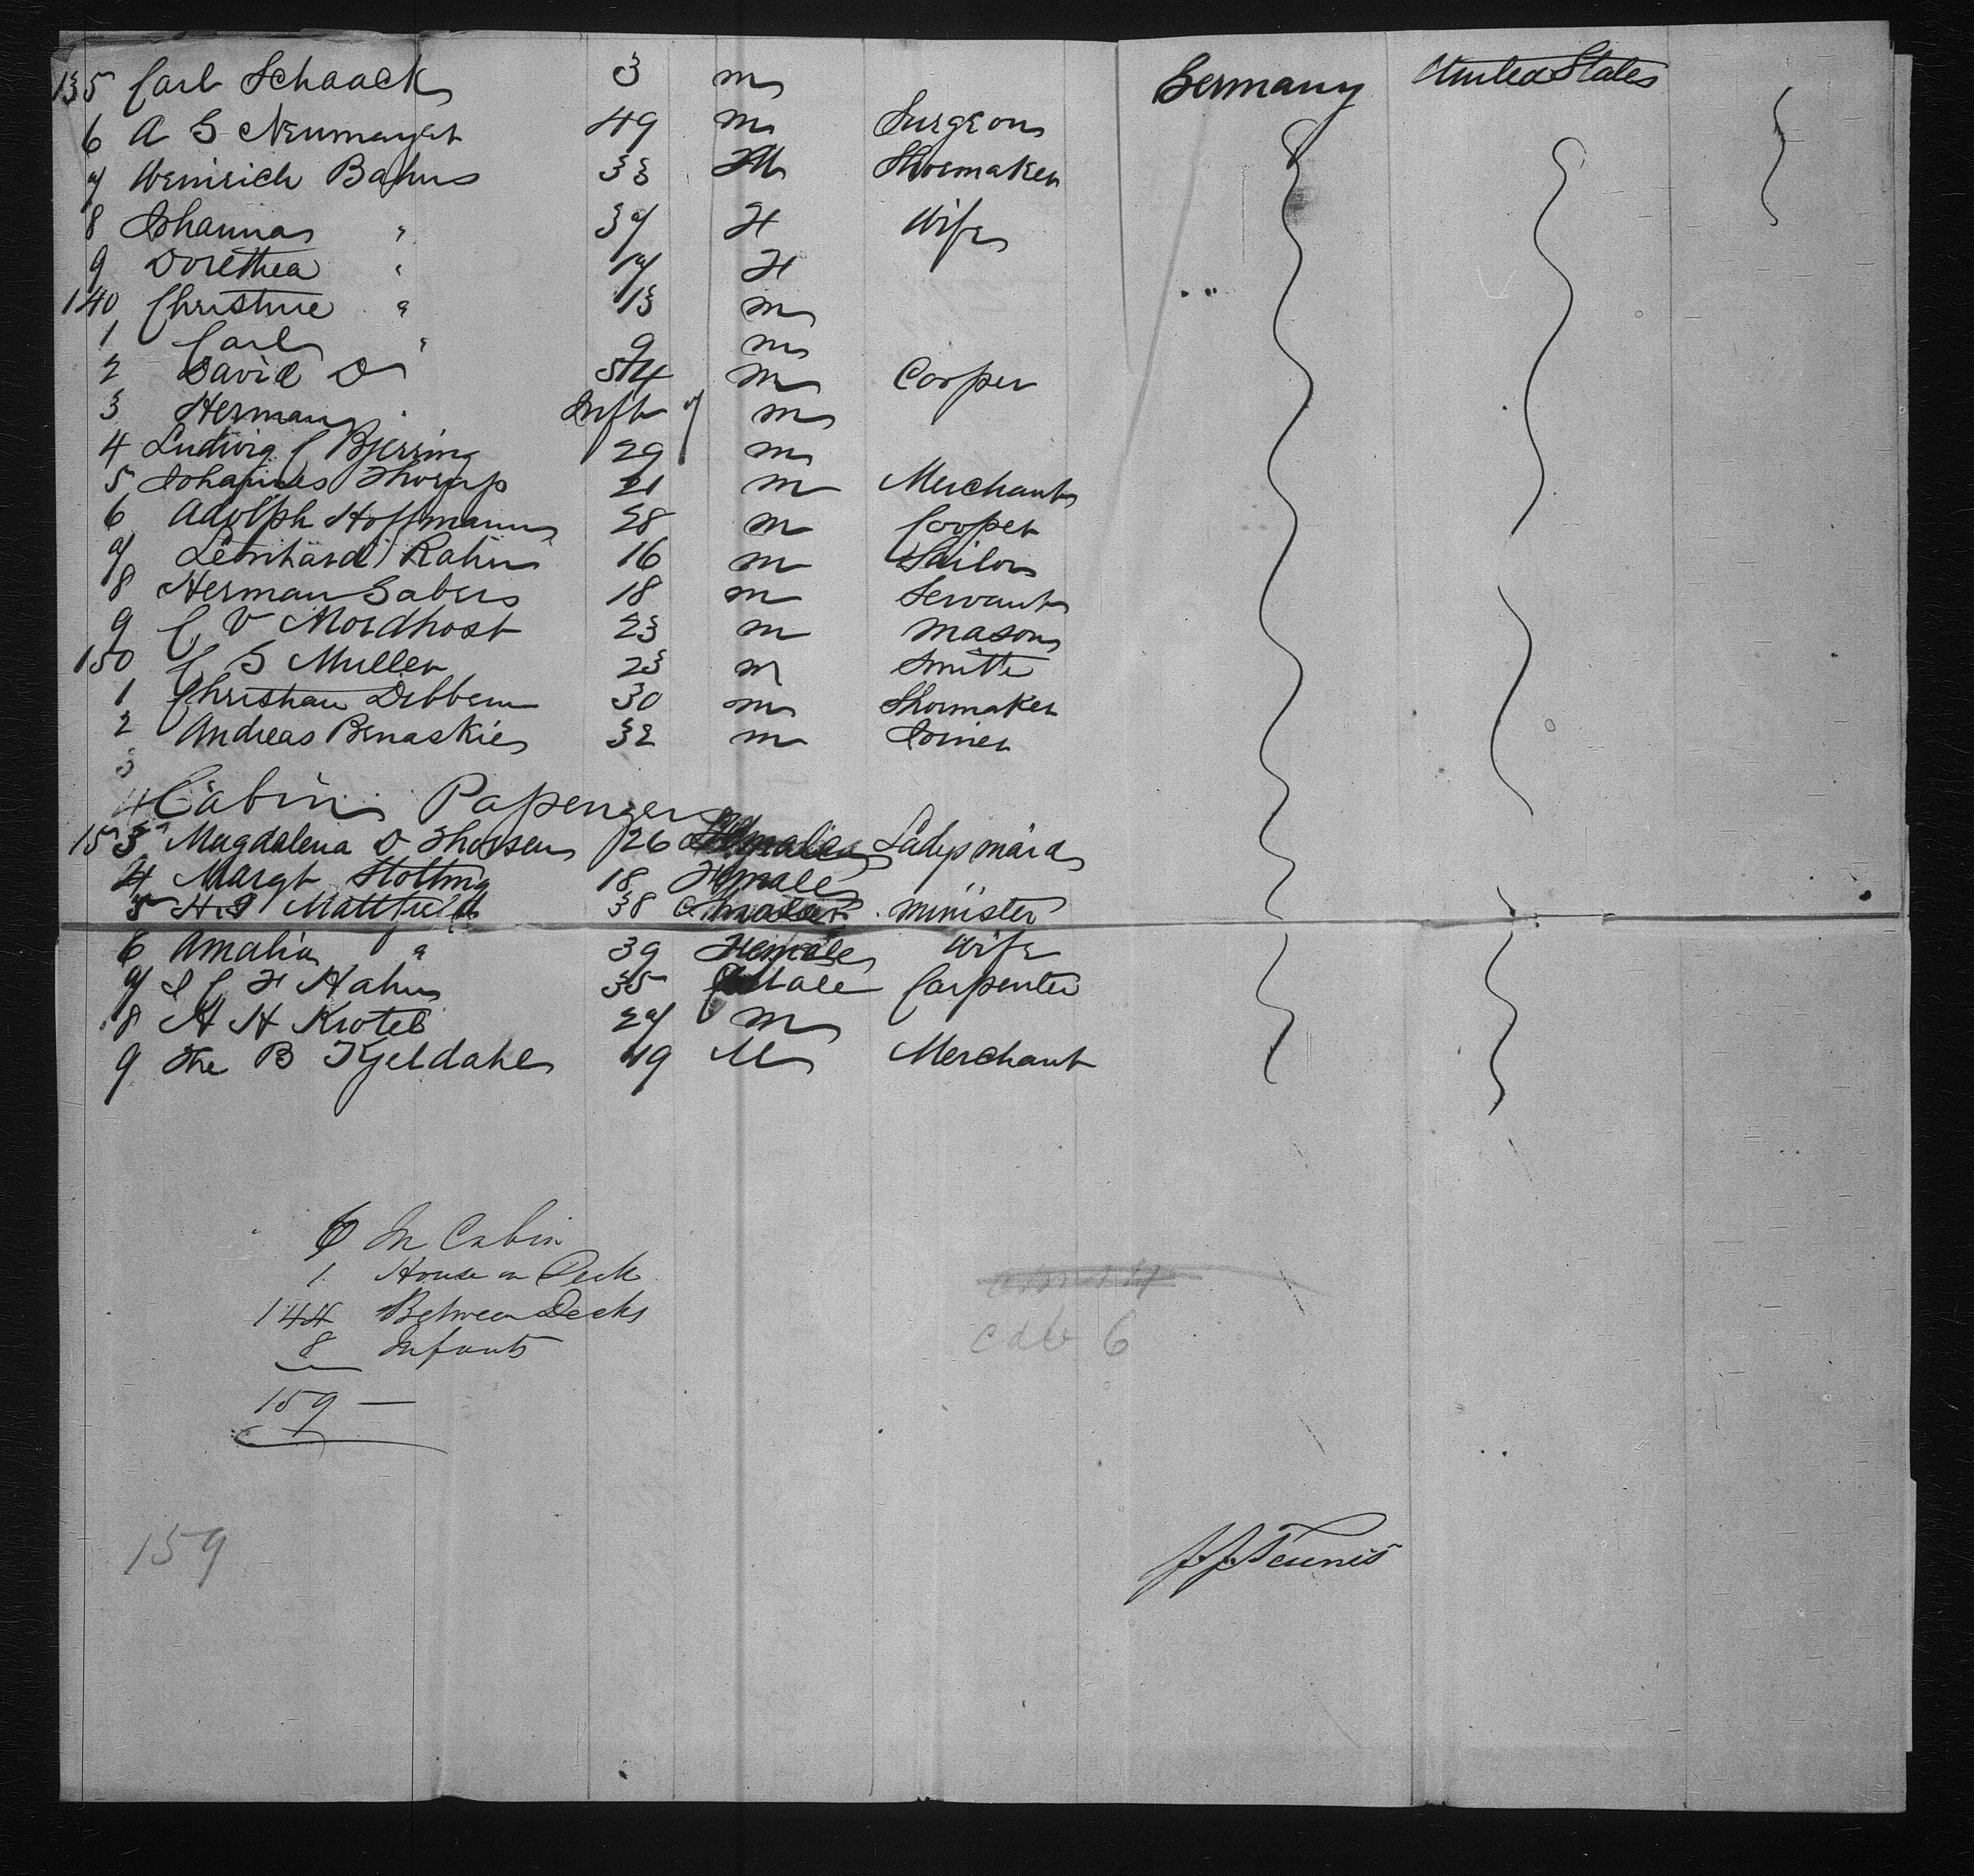 135 Carl Schaack 3 m Germany United States
6 A G Neumayer 49 m Surgeon
7 Heinrich Bahns 33 M Shoemaker
8 Johanna " 37 F Wife
9 Dorethea " 17 F
140 Christine " 13 m
1 Carl " 9 m
2 David D 54 m Cooper
3 Herman Inft m
4 Ludwig C Bjerring 29 m
5 Johannes Thorup 21 m Merchant
6 Adolph Hoffmann 28 m Cooper
7 Leonhard Rahn 16 m Sailor
8 Herman Gabers 18 m Servant
9 C V Mordhost 23 m Mason
150 C G Muller 23 m Smith
1 Christian Dibbern 30 m Shoemaker
2 Andreas Benaskie 32 m Joiner
3
4 Cabin Passengers
153 Magdalena D Thorsen 26 Ladys maid
4 Margt Stotting 18 Female
5 H S Mattfield 38 minister
6 Amalia " 39 Female Wife
7 J C F Hahn 35 Male Carpenter
8 A H Krotel 27 m
9 The B Kjeldahl 49 M Merchant
6 In Cabin
1 House on Deck
144 Between Decks
8 Infants
159 —
cab 6
159
J. J. Teunis